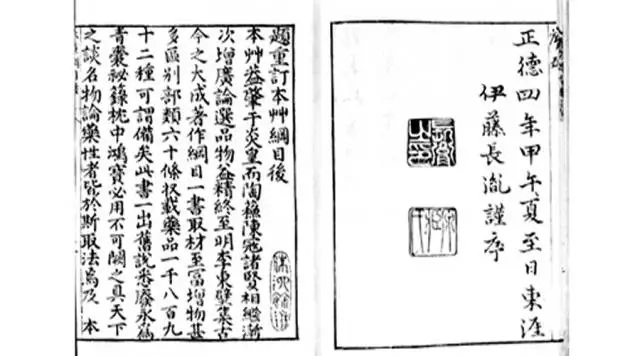 正德四年甲午夏至日東涯
伊藤長胤謹序
題重訂本艸綱目後
本艸葢肇于炎皇而陶蘇陳寇諸賢相繼漸
次增廣論選品物益精終至明李東璧集古
今之大成著作綱目一書取材至富增物甚
多區别部類六十條收載藥品一千八百九
十二種可謂備矣此書一出舊說悉廢永為
青囊祕籙枕中鴻寶必用不可闕之具天下
之談名物論藥性者皆於斯取法焉及 本